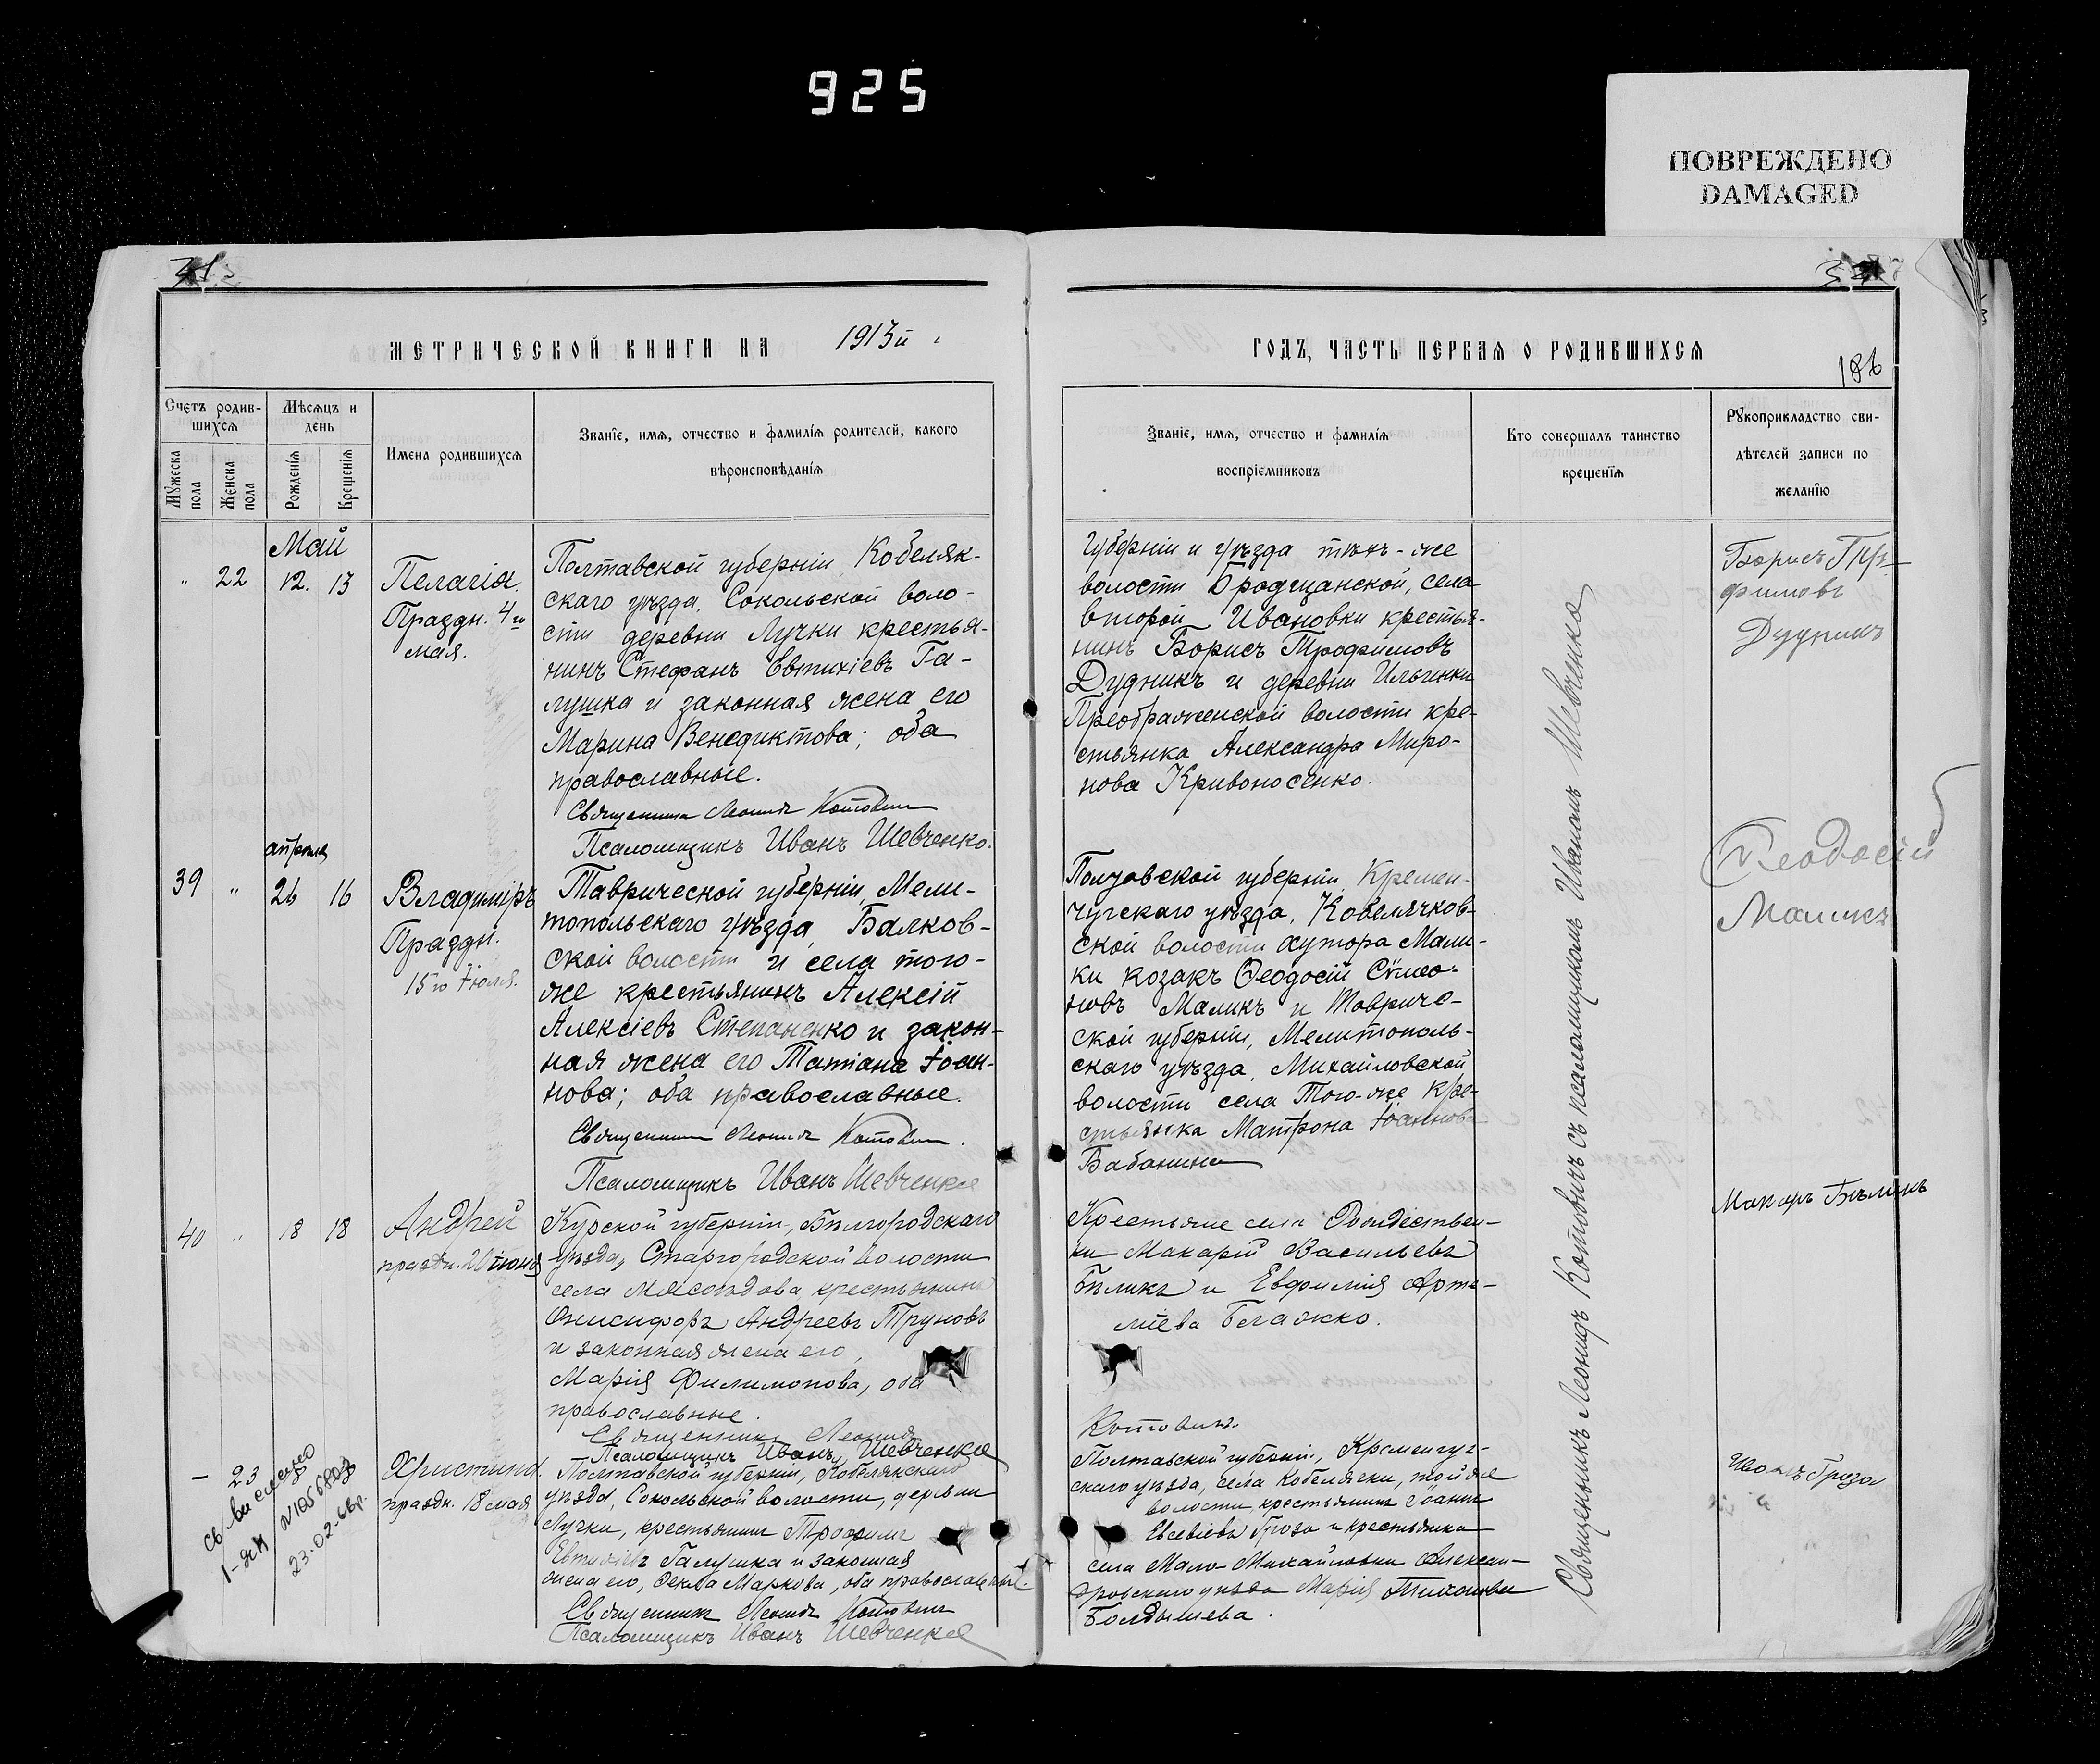 925
ПОВРЕЖДЕНО
DAMAGED
МЕТРИЧЕСКОЙ КНИГИ НА 1913й
ГОДЪ, ЧАСТЬ ПЕРВАЯ О РОДИВШИХСЯ
186
Счетъ родив-
шихся
Мужеска
пола
Женска
пола
Мѣсяцъ и
день
Рожденія
Крещенія
Имена родившихся
Званіе, имя, отчество и фамилія родителей, какого
вѣроисповѣданія
Званіе, имя, отчество и фамилія
воспріемниковъ
Кто совершалъ таинство
крещенія
Рукоприкладство сви-
дѣтелей записи по
желанію
Май
" 22 12. 13
Пелагія.
Праздн. 4го
мая.
Полтавской губерніи, Кобеляк-
скаго уѣзда, Сокольской воло-
сти деревни Лучки крестья-
нинъ Стефанъ Евтихіевъ Га-
лушка и законная жена его
Марина Венедиктова; оба
православные.
Священникъ Леонидъ Котовичъ
Псаломщикъ Иванъ Шевченко.
Губерніи и уѣзда тѣхъ-же
волости Бродчанской, села
второй Ивановки крестья-
нинъ Борисъ Трофимовъ
Дудникъ и деревни Ильченки
Преображенской волости кре-
стьянка Александра Миро-
нова Кривоносенко.
Борисъ Тр
фимовъ
Дудникъ
апрѣля
39 " 26 16
Владиміръ
Праздн.
15го Іюля.
Таврической губерніи, Мели-
топольскаго уѣзда, Балков-
ской волости и села того-
же крестьянинъ Алексій
Алексіевъ Степаненко и закон-
ная жена его Татіана Іоан-
нова; оба православные.
Священникъ Леонидъ Котовичъ.
Псаломщикъ Иванъ Шевченко
Полтавской губерніи, Кремен-
чугскаго уѣзда, Кобелячков-
ской волости хутора Мали-
ки козакъ Ѳеодосій Сѵмео-
новъ Маликъ и Тавриче-
ской губерніи, Мелитополь-
скаго уѣзда, Михайловской
волости села Того-же кре-
стьянка Матрона Іоаннова
Бабанина
Ѳеодосій
Маликъ
40 " 18 18
Андрей
праздн. 20 іюня
Курской губерніи, Бѣлгородскаго
уѣзда, Старгородской волости
села Мясоѣдова крестьянинъ
Онисифоръ Андреевъ Труновъ
и законная жена его,
Марія Филимонова, оба
православные.
Священникъ Леонидъ
Котовичъ.
Псаломщикъ Иванъ Шевченко
Крестьяне села Рождествен-
ки Макарій Васильевъ
Бѣликъ и Евфимія Арте-
міева Бегажко.
Макаръ Бѣликъ
— 23
Св. выслано
1-ЯН №1056803
23-02-66г.
Христина.
праздн. 18 мая
Полтавской губерніи, Кобелякскаго
уѣзда, Сокольской волости, деревни
Лучки, крестьянинъ Трофимъ
Евтихіевъ Галушка и законная
жена его, Ѳекла Маркова, оба православные.
Священникъ Леонидъ Котовичъ
Псаломщикъ Иванъ Шевченко
Полтавской губерніи, Кременчуг-
скаго уѣзда, села Кобелячки, той же
волости, крестьянинъ Іоаннъ
Евсевіевъ Гроза и крестьянка
села Мало-Михайловки Алексан-
дровскаго уѣзда Марія Тиханова
Болдышева.
Иванъ Гроза
Священникъ Леонидъ Котовичъ съ псаломщикомъ Иваномъ Шевченко